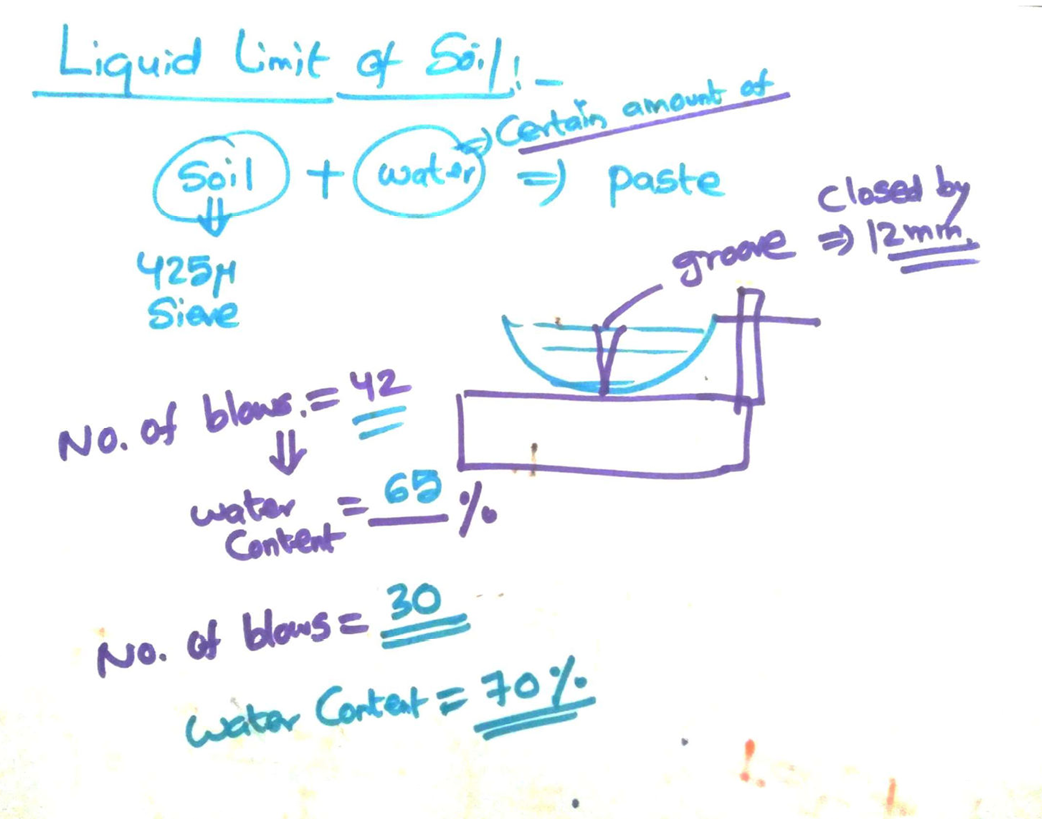 Liquid Limit of Soil:-
Soil + water ⇒ Certain amount of
⇒ paste
⇓
425μ
Sieve
groove ⇒ Closed by
12mm.
No. of blows = 42
⇓
water
Content = 65 %
No. of blows = 30
Water Content = 70%